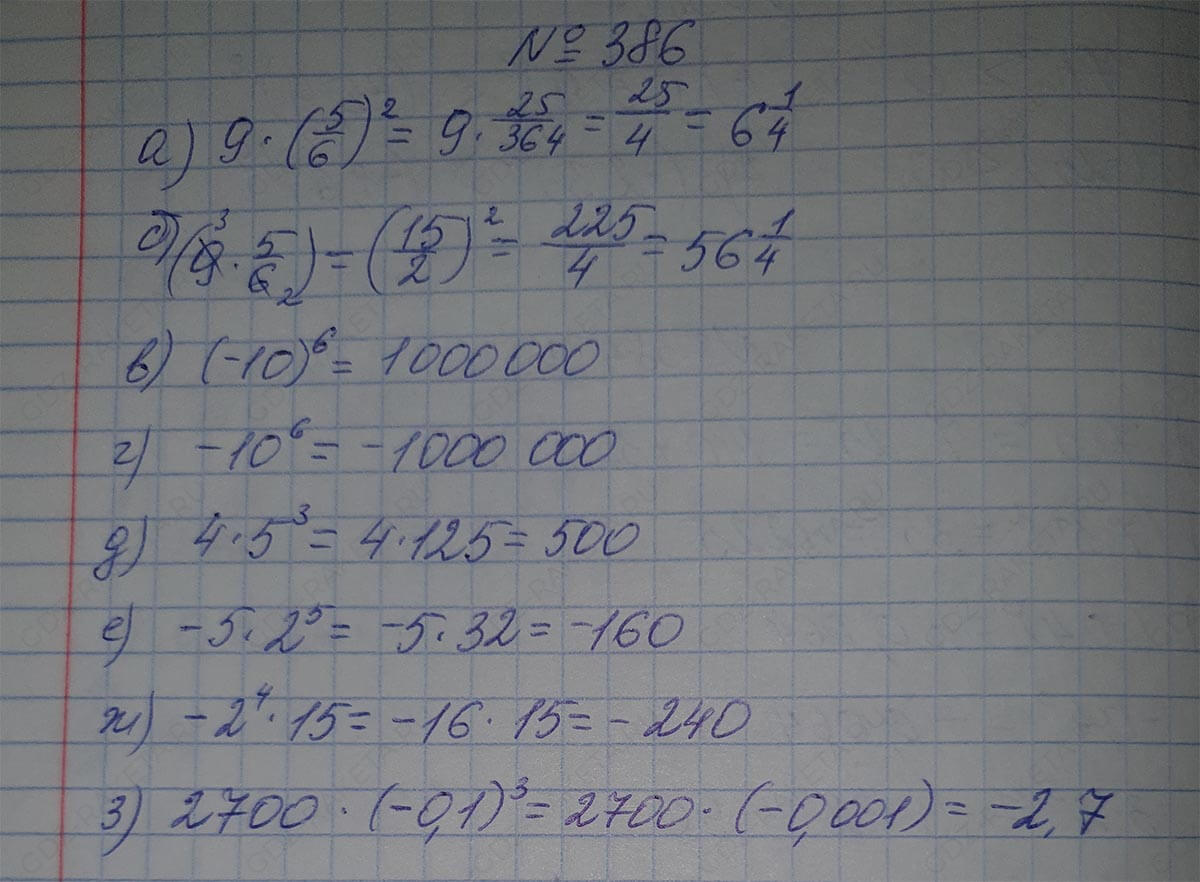 № 386
а) 9 · (5/6)² = 9 · 25/36 4 = 25/4 = 6 1/4
б) (9 3 · 5/6 2) = (15/2)² = 225/4 = 56 1/4
в) (-10)⁶ = 1000 000
г) -10⁶ = -1000 000
д) 4 · 5³ = 4 · 125 = 500
е) -5 · 2⁵ = -5 · 32 = -160
ж) -2⁴ · 15 = -16 · 15 = -240
з) 2700 · (-0,1)³ = 2700 · (-0,001) = -2,7